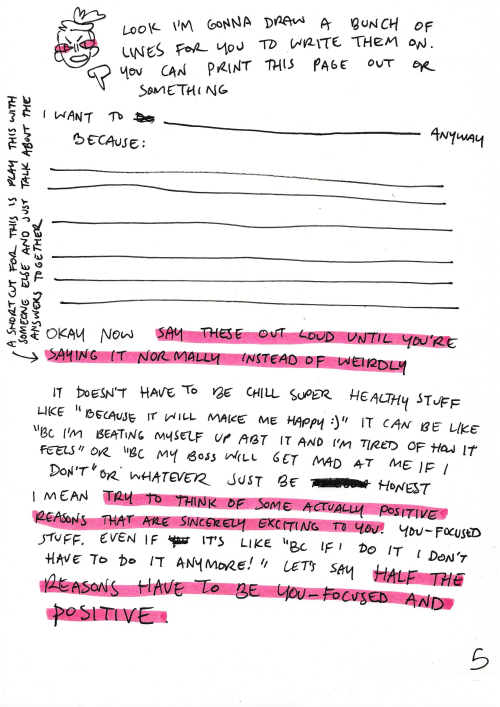 LOOK I'M GONNA DRAW A BUNCH OF
LINES FOR YOU TO WRITE THEM ON.
YOU CAN PRINT THIS PAGE OUT OR
SOMETHING
I WANT TO ANYWAY
BECAUSE:
A SHORTCUT FOR THIS IS PLAY THIS WITH
SOMEONE ELSE AND JUST TALK ABOUT THE
ANSWERS TOGETHER
OKAY NOW SAY THESE OUT LOUD UNTIL YOU'RE
SAYING IT NORMALLY INSTEAD OF WEIRDLY
IT DOESN'T HAVE TO BE CHILL SUPER HEALTHY STUFF
LIKE "BECAUSE IT WILL MAKE ME HAPPY :)" IT CAN BE LIKE
"BC I'M BEATING MYSELF UP ABT IT AND I'M TIRED OF HOW IT
FEELS" OR "BC MY BOSS WILL GET MAD AT ME IF I
DON'T" OR WHATEVER JUST BE HONEST
I MEAN TRY TO THINK OF SOME ACTUALLY POSITIVE
REASONS THAT ARE SINCERELY EXCITING TO YOU. YOU-FOCUSED
STUFF. EVEN IF IT'S LIKE "BC IF I DO IT I DON'T
HAVE TO DO IT ANYMORE!" LET'S SAY HALF THE
REASONS HAVE TO BE YOU-FOCUSED AND
POSITIVE.
5